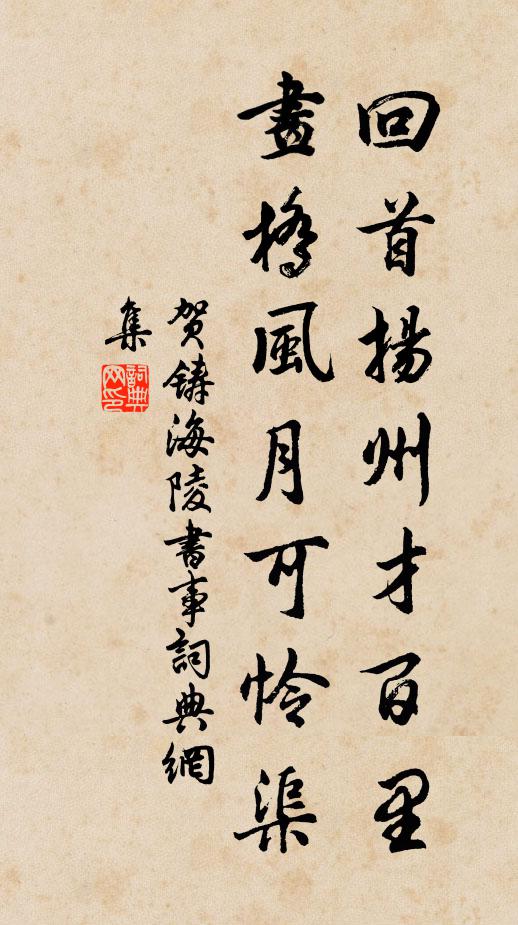 回首揚州才百里
畫橋風月可怜渠
贺鑄海陵書事詞典網
集
詞典
网印